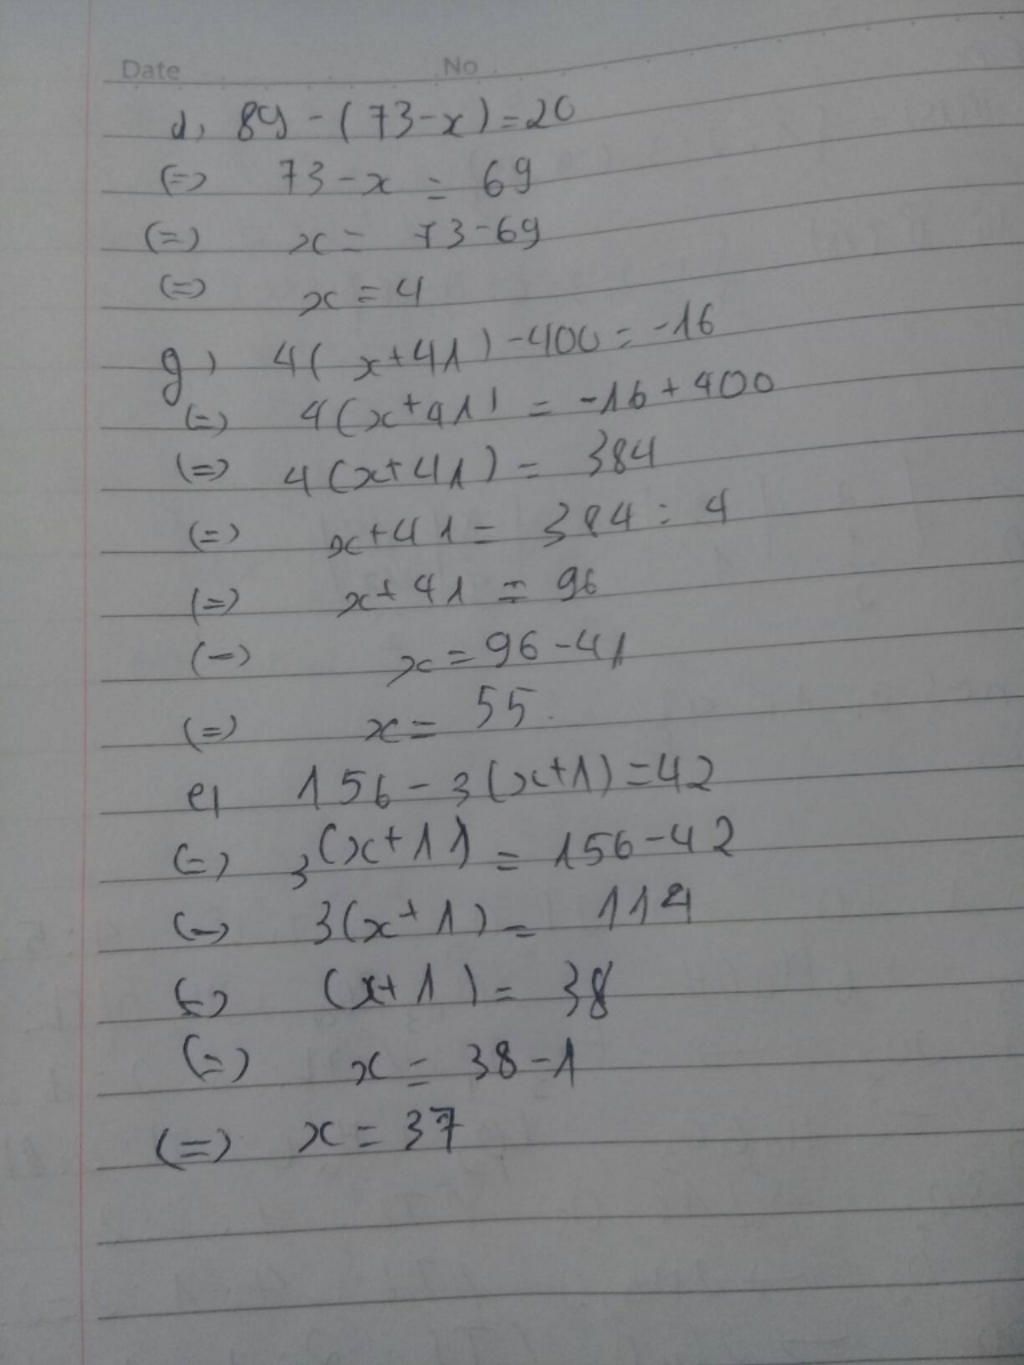 Date No
d, 89 - (73 - x) = 20
(=) 73 - x = 69
(=) x = 73 - 69
(=) x = 4
g) 4( x + 41) - 400 = -16
(=) 4(x + 41) = -16 + 400
(=) 4(x + 41) = 384
(=) x + 41 = 384 : 4
(=) x + 41 = 96
(=) x = 96 - 41
(=) x = 55.
e, 156 - 3(x + 1) = 42
(=) 3(x + 11) = 156 - 42
(=) 3(x + 1) = 114
(=) (x + 1) = 38
(=) x = 38 - 1
(=) x = 37